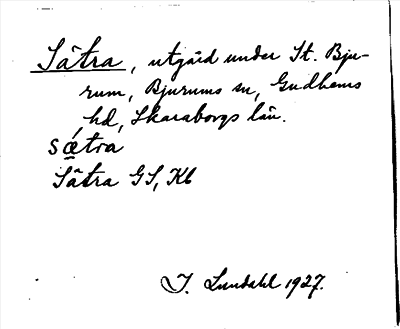 Sätra, utgård under St. Bju-
rum, Bjurums sn, Gudhems
hd, Skaraborgs län.
sǽtra
Sätra GS, Kb
I. Lundahl 1927.